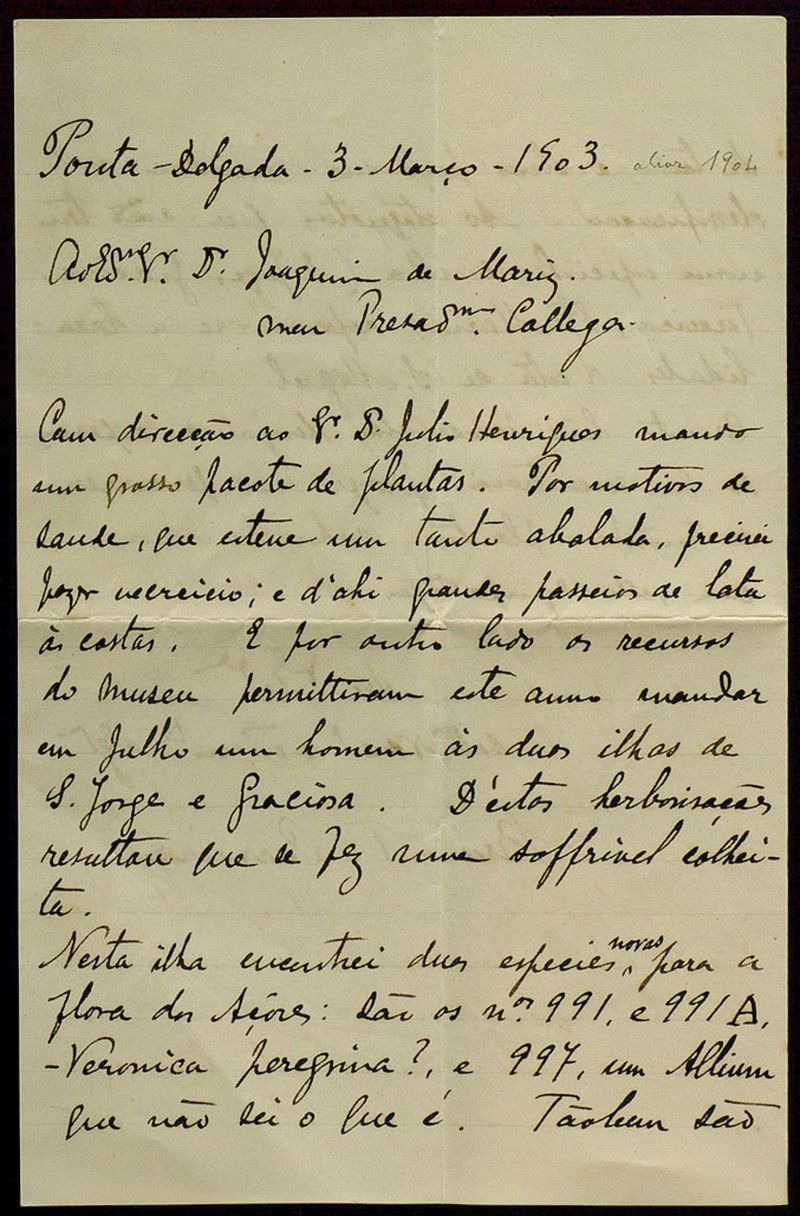 Ponta-Delgada - 3 - Março - 1903. aliás 1904
Ao Exmo. Sr. Dr. Joaquim de Mariz.
meu Presadmo. Collega.
Com direcção ao Sr. Dr. Julio Henriques mando
um grosso pacote de plantas. Por motivos de
saude, que esteve um tanto abalada, precisei
fazer exercicio; e d'ahi grandes passeios de lata
ás costas. E por outro lado os recursos
do museu permittiram este anno mandar
em Julho um homem ás duas ilhas de
S. Jorge e Graciosa. D'estas herborisações
resultou que se fez uma soffrivel colhei-
ta.
Nesta ilha encontrei duas especies novas para a
flora dos Açores: são os nos. 991, e 991A,
-Veronica peregrina?, e 997, um Allium
que não sei o que é. Tãobem são